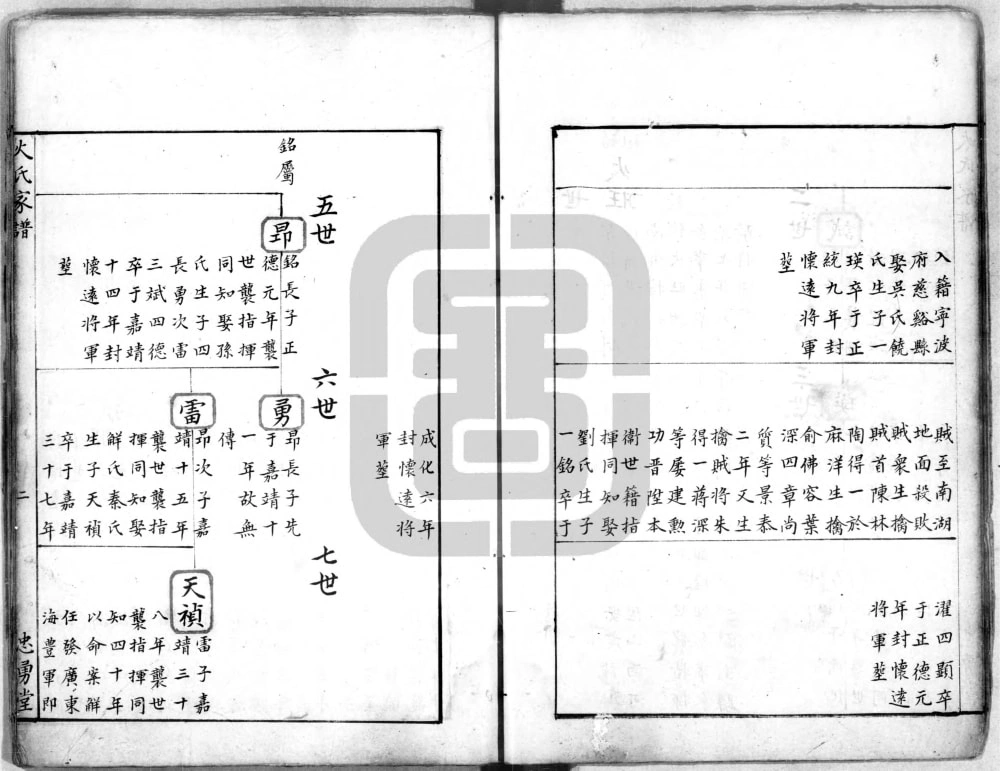 入籍寧波
府慈谿縣
娶吳氏饒
氏生子一
瑛卒于正
統九年封
懷遠將軍
塟
賊至南湖
地面殺敗
賊衆生擒
賊首陳林
陶得一於
麻洋生擒
俞佛容葉
深四章尚
質等景泰
二年又生
擒賊將朱
得一蔣深
等屡建勲
功晋陞本
衛世籍指
揮同知娶
劉氏生子
一銘卒于
濯四顕卒
于正德元
年封懷遠
將軍塟
成化六年
封懷遠將
軍塟
五世
銘屬
昻
銘長子正
德元年襲
世襲指揮
同知娶孫
氏生子四
長勇次雷
三斌四德
卒于嘉靖
十四年封
懷遠將軍
塟
六世
勇
昻長子先
于嘉靖十
一年故無
傳
雷
昻次子嘉
靖十五年
襲世襲指
揮同知娶
解氏秦氏
生子天禎
卒于嘉靖
三十七年
七世
天禎
雷子嘉
靖三十
八年襲世
襲指揮同
知四十年
以命案解
任發廣東
海豐軍即
火氏家譜
二
忠勇堂